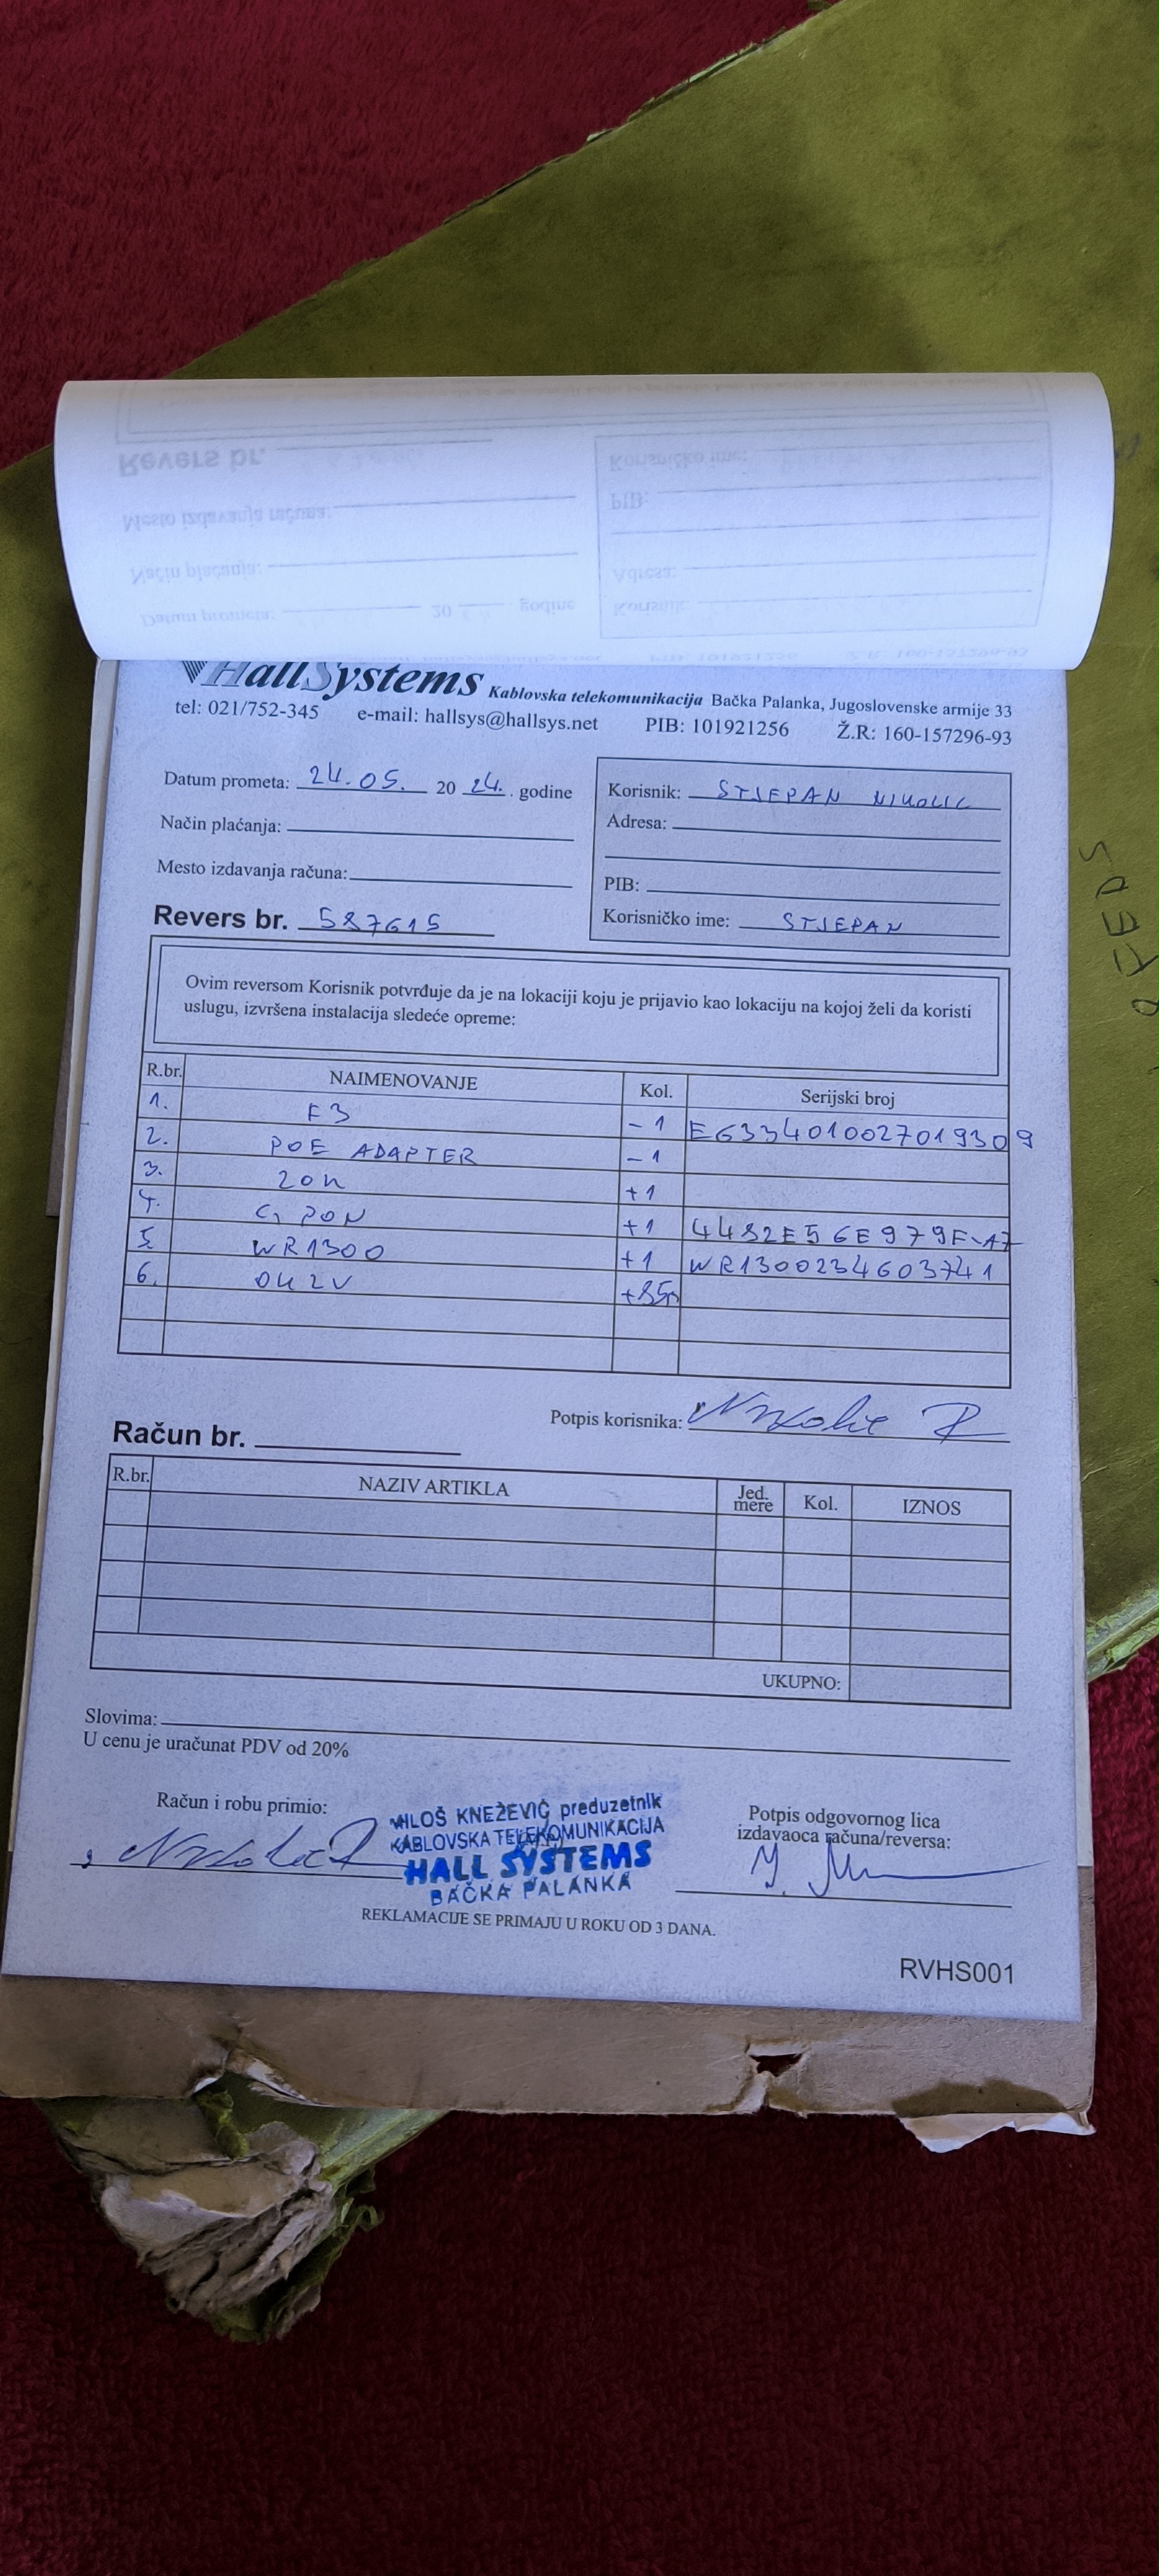 HallSystems Kablovska telekomunikacija Bačka Palanka, Jugoslovenske armije 33
tel: 021/752-345 e-mail: hallsys@hallsys.net PIB: 101921256 Ž.R: 160-157296-93
Datum prometa: 24.05. 20 24. godine
Način plaćanja:
Mesto izdavanja računa:
Revers br. 587615
Korisnik: STJEPAN NIKOLIC
Adresa:
PIB:
Korisničko ime: STJEPAN
Ovim reversom Korisnik potvrđuje da je na lokaciji koju je prijavio kao lokaciju na kojoj želi da koristi
uslugu, izvršena instalacija sledeće opreme:
R.br. NAIMENOVANJE Kol. Serijski broj
1. F3 -1 E6334010027019309
2. POE ADAPTER -1
3. ZON +1
4. G PON +1
5. WR1300 +1 WR1300234603741
6. +85m
Potpis korisnika: Nikolic
Račun br.
R.br. NAZIV ARTIKLA Jed. mere Kol. IZNOS
UKUPNO:
Slovima:
U cenu je uračunat PDV od 20%
Račun i robu primio:
MILOŠ KNEŽEVIĆ preduzetnik
KABLOVSKA TELEKOMUNIKACIJA
HALL SYSTEMS
BAČKA PALANKA
Potpis odgovornog lica
izdavaoca računa/reversa:
REKLAMACIJE SE PRIMAJU U ROKU OD 3 DANA.
RVHS001